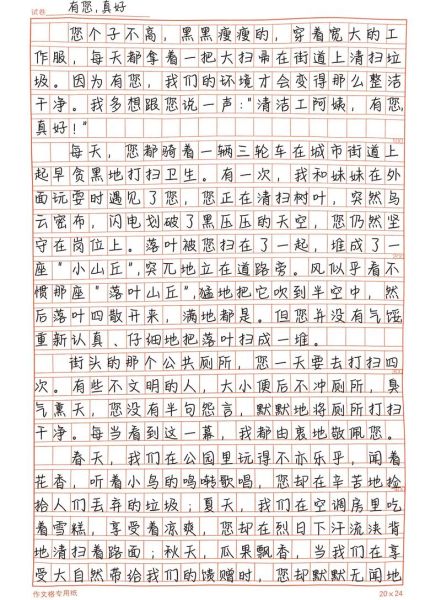 试卷 有您,真好
您个子不高，黑黑瘦瘦的，穿着宽大的工
作服，每天都拿着一把大扫帚在街道上清扫垃
圾。因为有您，我们的环境才会变得那么整洁
干净。我多想跟您说一声："清洁工阿姨，有您，
真好！"
100
每天，您都骑着一辆三轮车在城市街道上
起早贪黑地打扫卫生。有一次，我和妹妹在外
面玩耍时遇见了您，您正在清扫树叶，突然乌
云密布，闪电划破了黑压压的天空，您仍然坚
守在岗位上。落叶被您扫在了一起，堆成了一
200
座"小山丘"，突兀地立在道路旁。风似乎看不
惯那座"落叶山丘"，猛地把它吹到半空中，然
后落叶四散开来，满地都是。但您并没有气馁
重新认真、仔细地把落叶扫成一堆。
街头的那个公共厕所，您一天要去打扫四
300
次。有些不文明的人，大小便后不冲厕所，臭
气熏天，您没有半句怨言，默默地将厕所打扫
干净。每当看到这一幕，我都由衷地敬佩您。
春天，我们在公园里玩得不亦乐乎，闻着
花香，听着小鸟的鸣啭歌唱，您却在辛苦地捡
拾人们丢弃的垃圾；夏天，我们在空调房里吃
着雪糕，享受着凉爽，您却在烈日下汗流浃背
地清扫着路面；秋天，瓜果飘香，当我们在享
受大自然带给我们的馈赠时，您却默默无闻地
作文格专用纸 20×24